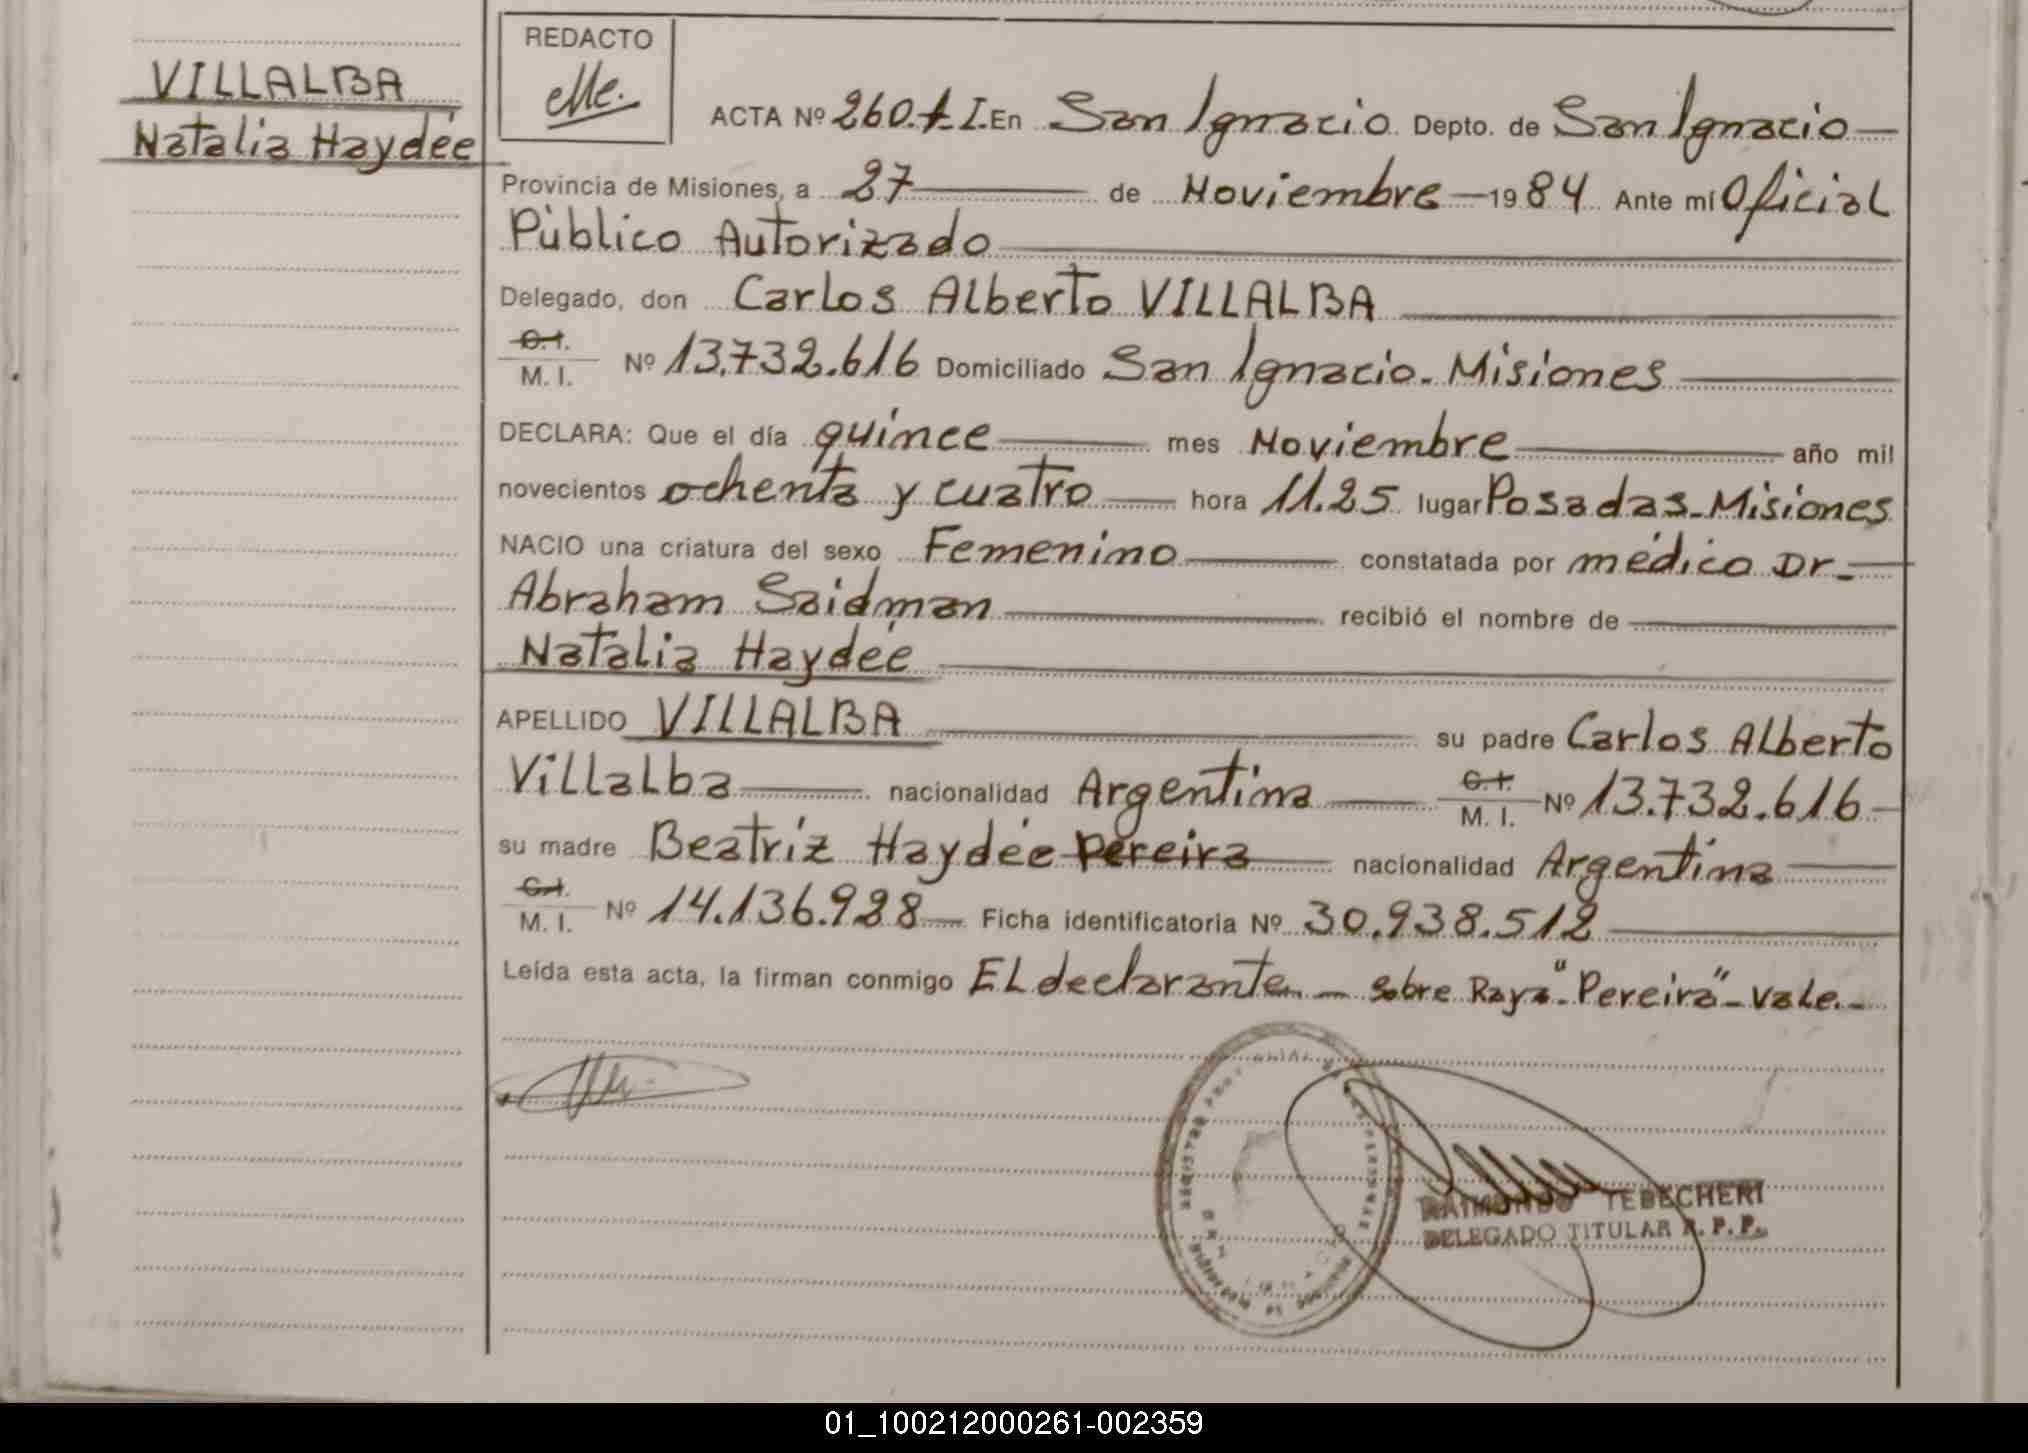 REDACTO
VILLALBA
Natalia Haydée
ACTA Nº 260.t.I. En San Ignacio Depto. de San Ignacio
Provincia de Misiones, a 27 de Noviembre 1984 Ante mí Oficial
Público Autorizado
Delegado, don Carlos Alberto VILLALBA
C.I.
M. I. Nº 13.732.616 Domiciliado San Ignacio. Misiones
DECLARA: Que el día quince mes Noviembre año mil
novecientos ochenta y cuatro hora 11.25 lugar Posadas-Misiones
NACIO una criatura del sexo Femenino constatada por médico Dr.
Abraham Saidman recibió el nombre de
Natalia Haydée
APELLIDO VILLALBA su padre Carlos Alberto
Villalba nacionalidad Argentina C.I. M. I. Nº 13.732.616
su madre Beatriz Haydée Pereira nacionalidad Argentina
C.I.
M. I. Nº 14.136.928 Ficha identificatoria Nº 30.938.512
Leída esta acta, la firman conmigo El declarante. - sobre Raya "Pereira" - vale.-
RAIMUNDO TEBECHERI
DELEGADO TITULAR R. P. P.
01_100212000261-002359